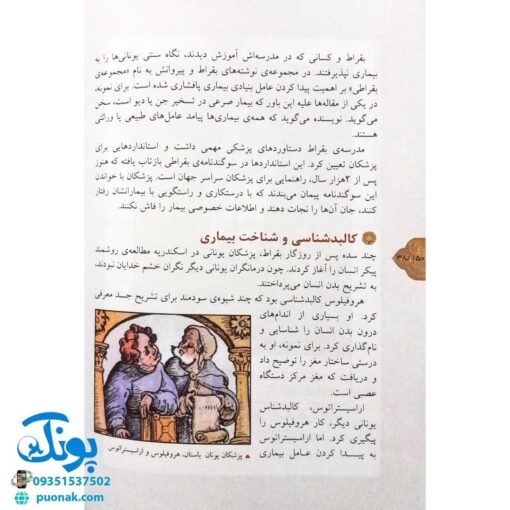 بقراط و کسانی که در مدرسه‌اش آموزش دیدند، نگاه سنتی یونانی‌ها را به
بیماری نپذیرفتند. در مجموعه‌ی نوشته‌های بقراط و پیروانش به نام «مجموعه‌ی
بقراطی» بر اهمیت پیدا کردن عامل بنیادی بیماری پافشاری شده است. برای نمونه،
در یکی از مقاله‌ها علیه این باور که بیمار صرعی در تسخیر جن یا دیو است، سخن
می‌گوید. نویسنده می‌گوید که همه‌ی بیماری‌ها پیامد عامل‌های طبیعی یا وراثتی
هستند.
مدرسه‌ی بقراط دستاوردهای پزشکی مهمی داشت و استانداردهایی برای
پزشکان تعیین کرد. این استانداردها در سوگندنامه‌ی بقراطی بازتاب یافته که هنوز
پس از ۲هزار سال، راهنمایی برای پزشکان سراسر جهان است. پزشکان با خواندن
این سوگندنامه پیمان می‌بندند که با درستکاری و راستگویی با بیمارانشان رفتار
کنند، جان آن‌ها را نجات دهند و اطلاعات خصوصی بیمار را فاش نکنند.
کالبدشناسی و شناخت بیماری
چند سده پس از روزگار بقراط، پزشکان یونانی در اسکندریه مطالعه‌ی روشمند
پیکر انسان را آغاز کردند. چون درمانگران یونانی دیگر نگران خشم خدایان نبودند،
به تشریح بدن انسان می‌پرداختند.
هروفیلوس کالبدشناسی بود که چند شیوه‌ی سودمند برای تشریح جسد معرفی
کرد. او بسیاری از اندام‌های
درون بدن انسان را شناسایی و
نام‌گذاری کرد. برای نمونه، او به
درستی ساختار مغز را توضیح داد
و دریافت که مغز مرکز دستگاه
عصبی است.
اراسیستراتوس، کالبدشناس
یونانی دیگر، کار هروفیلوس را
پیگیری کرد. اما اراسیستراتوس
به پیدا کردن عامل بیماری
▲ پزشکان یونان باستان، هروفیلوس و اراسیستراتوس
۳۸/۱۵۰
پونک
09351537502
puonak.com